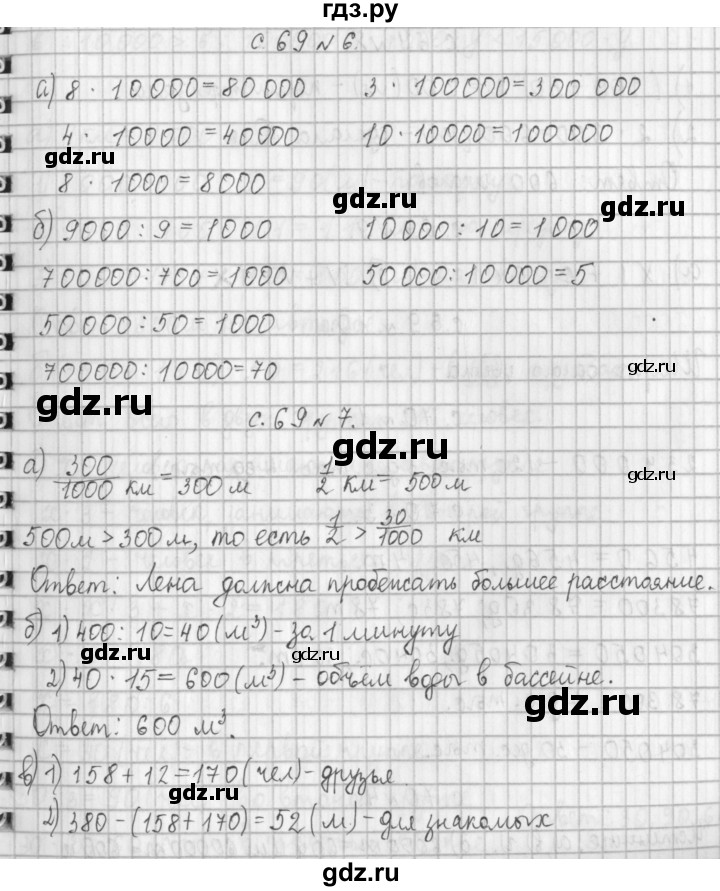 гдз.ру
с. 69 № 6.
а) 8 · 10 000 = 80 000 3 · 100000 = 300 000
4 · 10000 = 40000 10 · 10000 = 100 000
gdz.ru
8 · 1000 = 8000
gdz.ru
gdz.ru
б) 9000 : 9 = 1000 10 000 : 10 = 1000
700000 : 700 = 1000 50 000 : 10 000 = 5
50 000 : 50 = 1000
700000 : 10000 = 70
gdz.ru
gdz.ru
с. 69 № 7.
gdz.ru
а) 300/1000 км = 300 м 1/2 км = 500 м
gdz.ru
500 м > 300 м, то есть 1/2 > 30/1000 км
Ответ: Лена должна пробежать большее расстояние.
б) 1) 400 : 10 = 40 (м³) - за 1 минуту
gdz.ru
gdz.ru
2) 40 · 15 = 600 (м³) - объём воды в бассейне.
gdz.ru
Ответ: 600 м³.
в) 1) 158 + 12 = 170 (чел) - друзья.
gdz.ru
2) 380 - (158 + 170) = 52 (м) - для знакомых
gdz.ru
gdz.ru